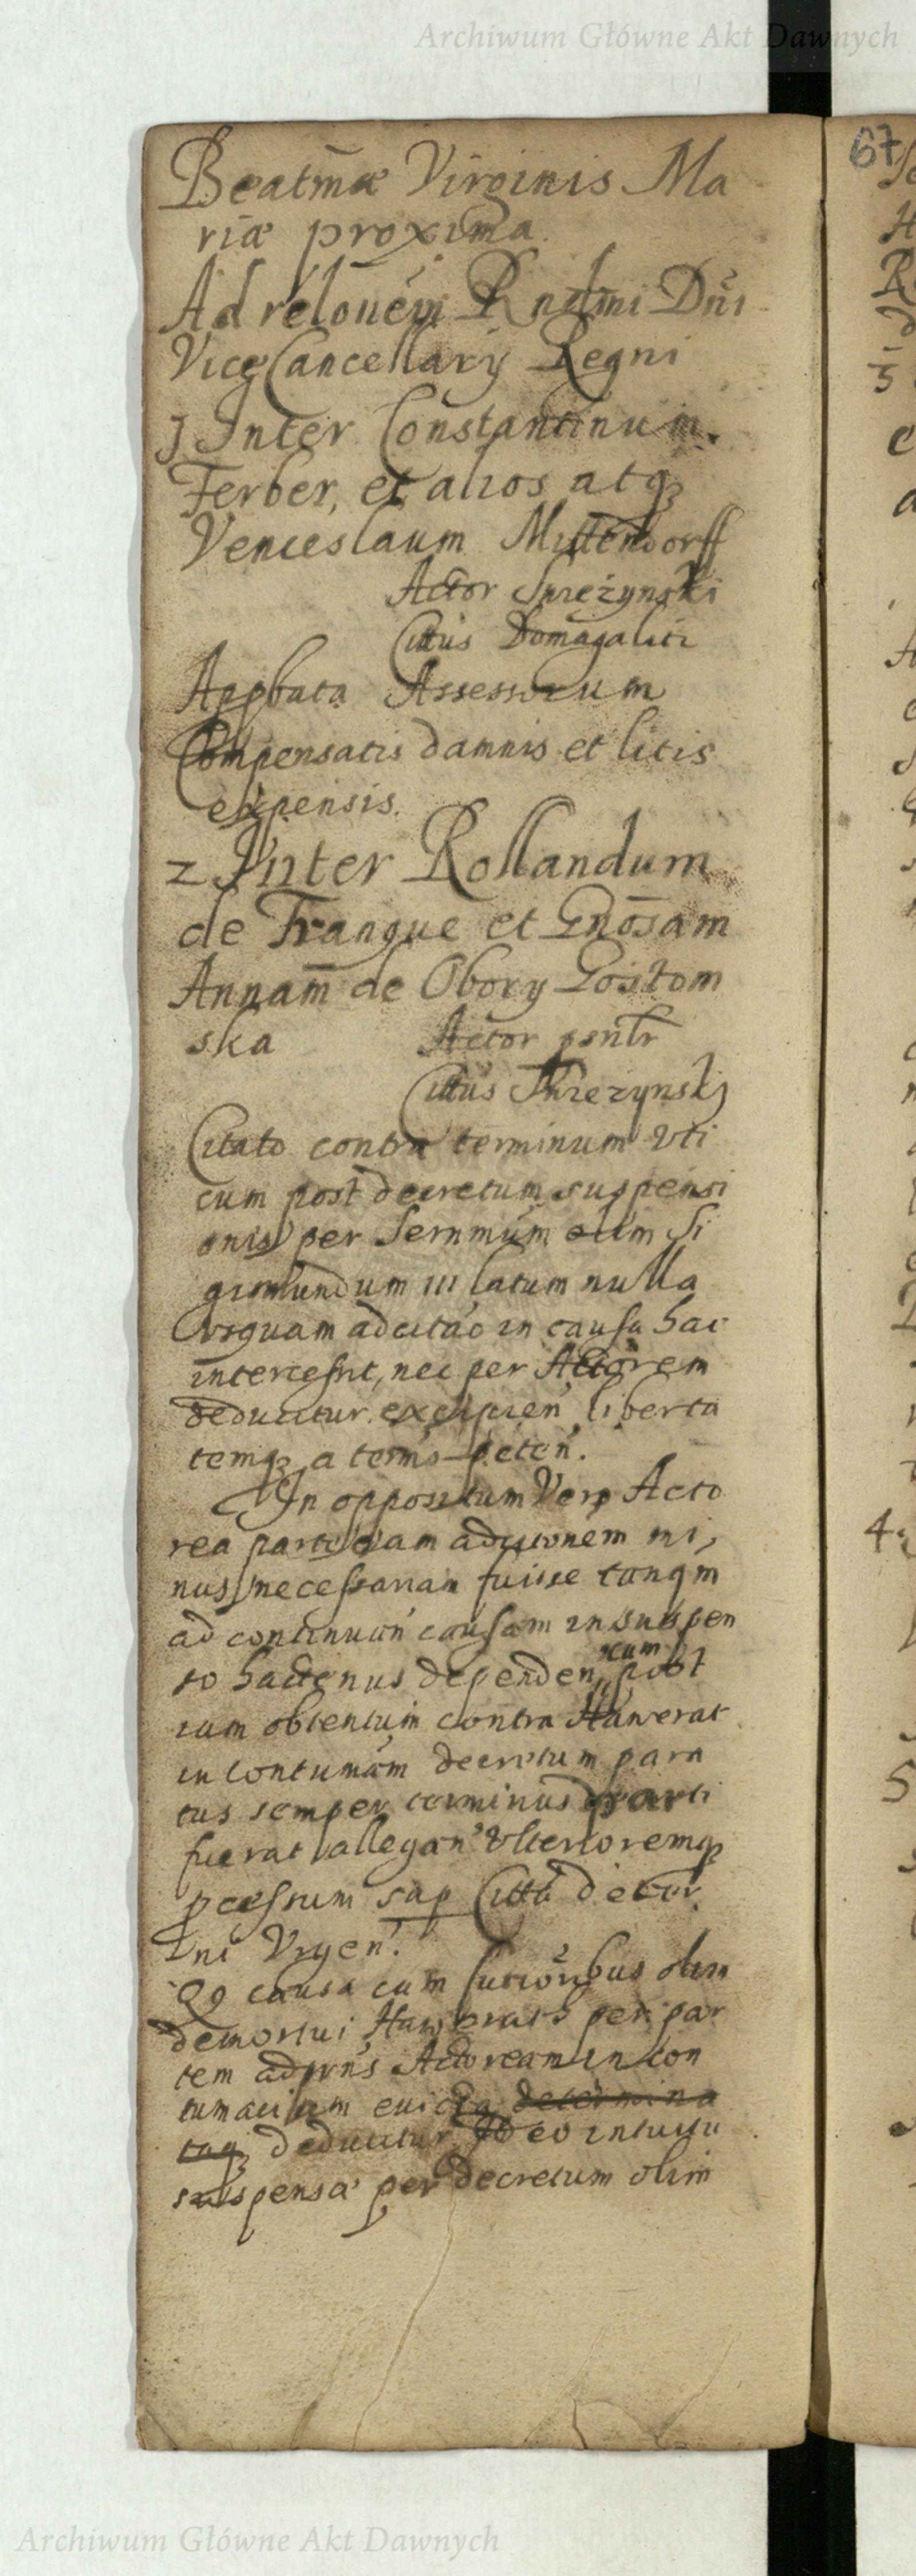 Archiwum Główne Akt Dawnych
67
Beatmæ Virginis Ma
riæ proxima
Ad relonem Rndmi Dni
Vice Cancellarij Regni
1 Inter Constantinum
Ferber, et alios atq3
Venceslaum Mittendorff
Actor
Cittus Domagalicz
Appbata Assessorum
Compensatis damnis et litis
expensis.
2 Inter Rollandum
de Franque et Gnosam
Annam de Obory Gostom
ska Actor psntr
Citus
Citato contra terminum vti
cum post decretum suspensi
onis per Sernmum olim Si
gismundum III latum nulla
vsquam adcitao in causa hac
intercessit, nec per Actorem
deducitur. excipien liberta
temq3 a termo peten.
In oppositum Vero Acto
rea parte eam adcitonem mi,
nus necessariam fuisse tanqm
ad continuan causam in suspen
so hactenus dependen, cum post
obtentum contra Hawerat
in contumam decretum para
tus semper terminus parti
fuerat allegan vlterioremq3
pcessum sup Citta decer
ni Vrgen.
causa cum olim
demortui per par
tem adprns Actoream in con
tumaciam euicta determina
taq3 deducitur eo intuitu
suspensa per decretum olim
Archiwum Główne Akt Dawnych